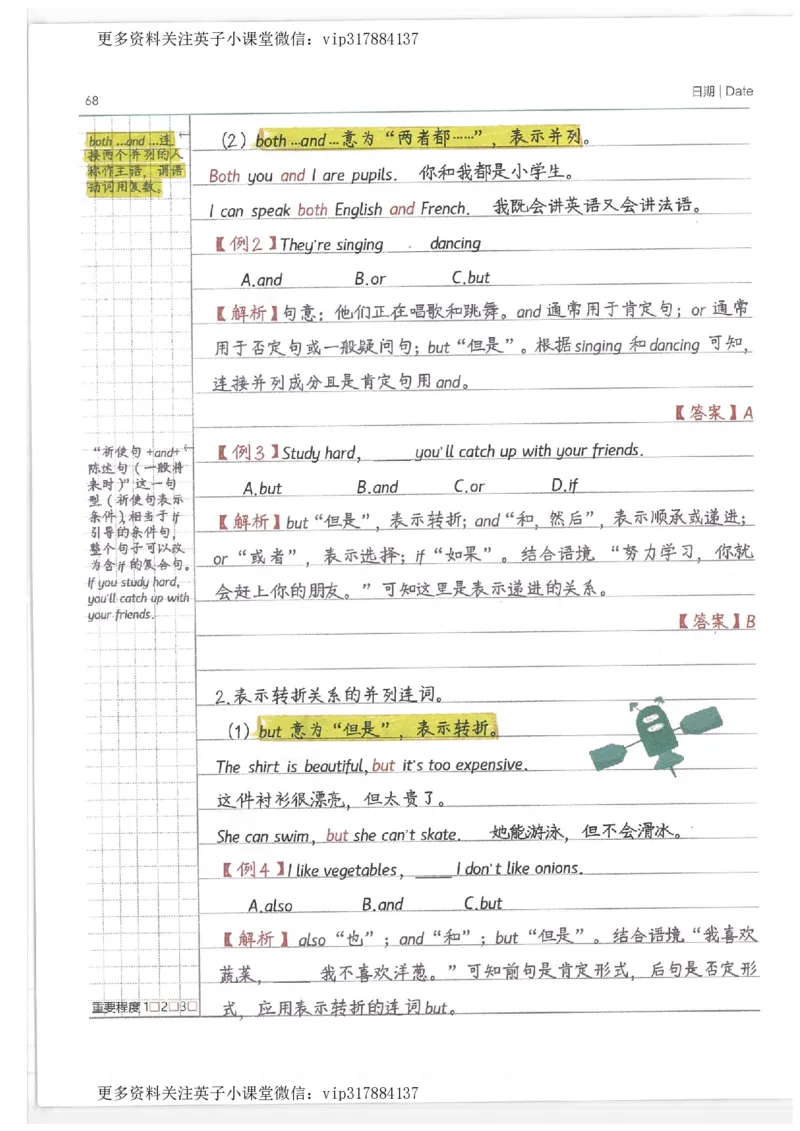 更多资料关注英子小课堂微信：vip317884137
68
日期 | Date
both …and …连
接两个并列的人
称作主语，谓语
动词用复数。
（2）both …and …意为“两者都……”，表示并列。
Both you and I are pupils. 你和我都是小学生。
I can speak both English and French. 我既会讲英语又会讲法语。
【例2】They're singing dancing
A.and B.or C.but
【解析】句意：他们正在唱歌和跳舞。and 通常用于肯定句；or 通常
用于否定句或一般疑问句；but“但是”。根据 singing 和 dancing 可知，
连接并列成分且是肯定句用 and。
【答案】A
“祈使句 +and+
陈述句（一般将
来时）”这一句
型（祈使句表示
条件），相当于 if
引导的条件句，
整个句子可以改
为含 if 的复合句。
If you study hard,
you'll catch up with
your friends.
【例3】Study hard, _____ you'll catch up with your friends.
A.but B.and C.or D.if
【解析】but“但是”，表示转折；and“和，然后”，表示顺承或递进；
or“或者”，表示选择；if“如果”。结合语境“努力学习，你就
会赶上你的朋友。”可知这里是表示递进的关系。
【答案】B
2.表示转折关系的并列连词。
（1）but 意为“但是”，表示转折。
The shirt is beautiful, but it's too expensive.
这件衬衫很漂亮，但太贵了。
She can swim, but she can't skate. 她能游泳，但不会滑冰。
【例4】I like vegetables, _____ I don't like onions.
A.also B.and C.but
【解析】also“也”；and“和”；but“但是”。结合语境“我喜欢
蔬菜，_____ 我不喜欢洋葱。”可知前句是肯定形式，后句是否定形
式，应用表示转折的连词 but。
重要程度 1□2□3□
更多资料关注英子小课堂微信：vip317884137